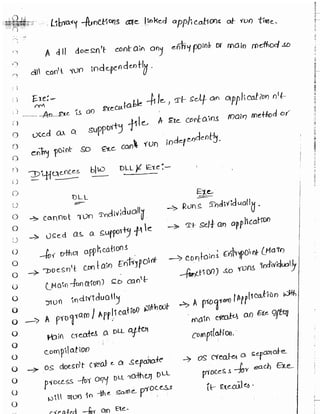 Library functions are linked applications at run time.
A dll doesn't contain any entry point or main method so
dll can't run independently.
Exe:-
An Exe is an executable file, It self an application n't
used as a supporty file. A Exe contains main method or
entry point so Exe can't run independently.
Differences b/w DLL & Exe:-
DLL
-> cannot run Individually
-> Used as a supporty file
for other applications
-> Doesn't contain Entrypoint
(Main function) so can't
run individually
-> A program / Application without
Main creates a DLL after
compilation
-> OS doesn't creat e a separate
process for any DLL rather DLL
will run in the same process
created for an Exe.
Exe
-> Runs Individually.
-> It self an application
-> contains Entrypoint (Main
function) so runs individually
-> A program /Application with
main creates an Exe after
compilation.
-> OS creates a separate
process for each Exe
it Executes.